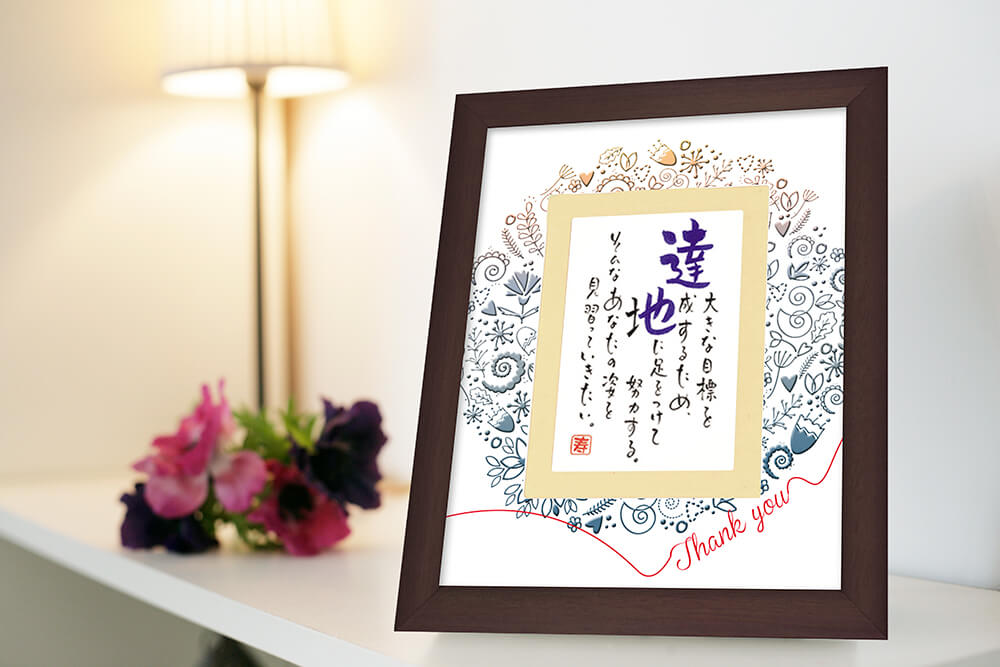 大きな目標を
達成するため、
地に足をつけて
努力する。
そんなあなたの姿を
見習っていきたい。
寿
Thank you